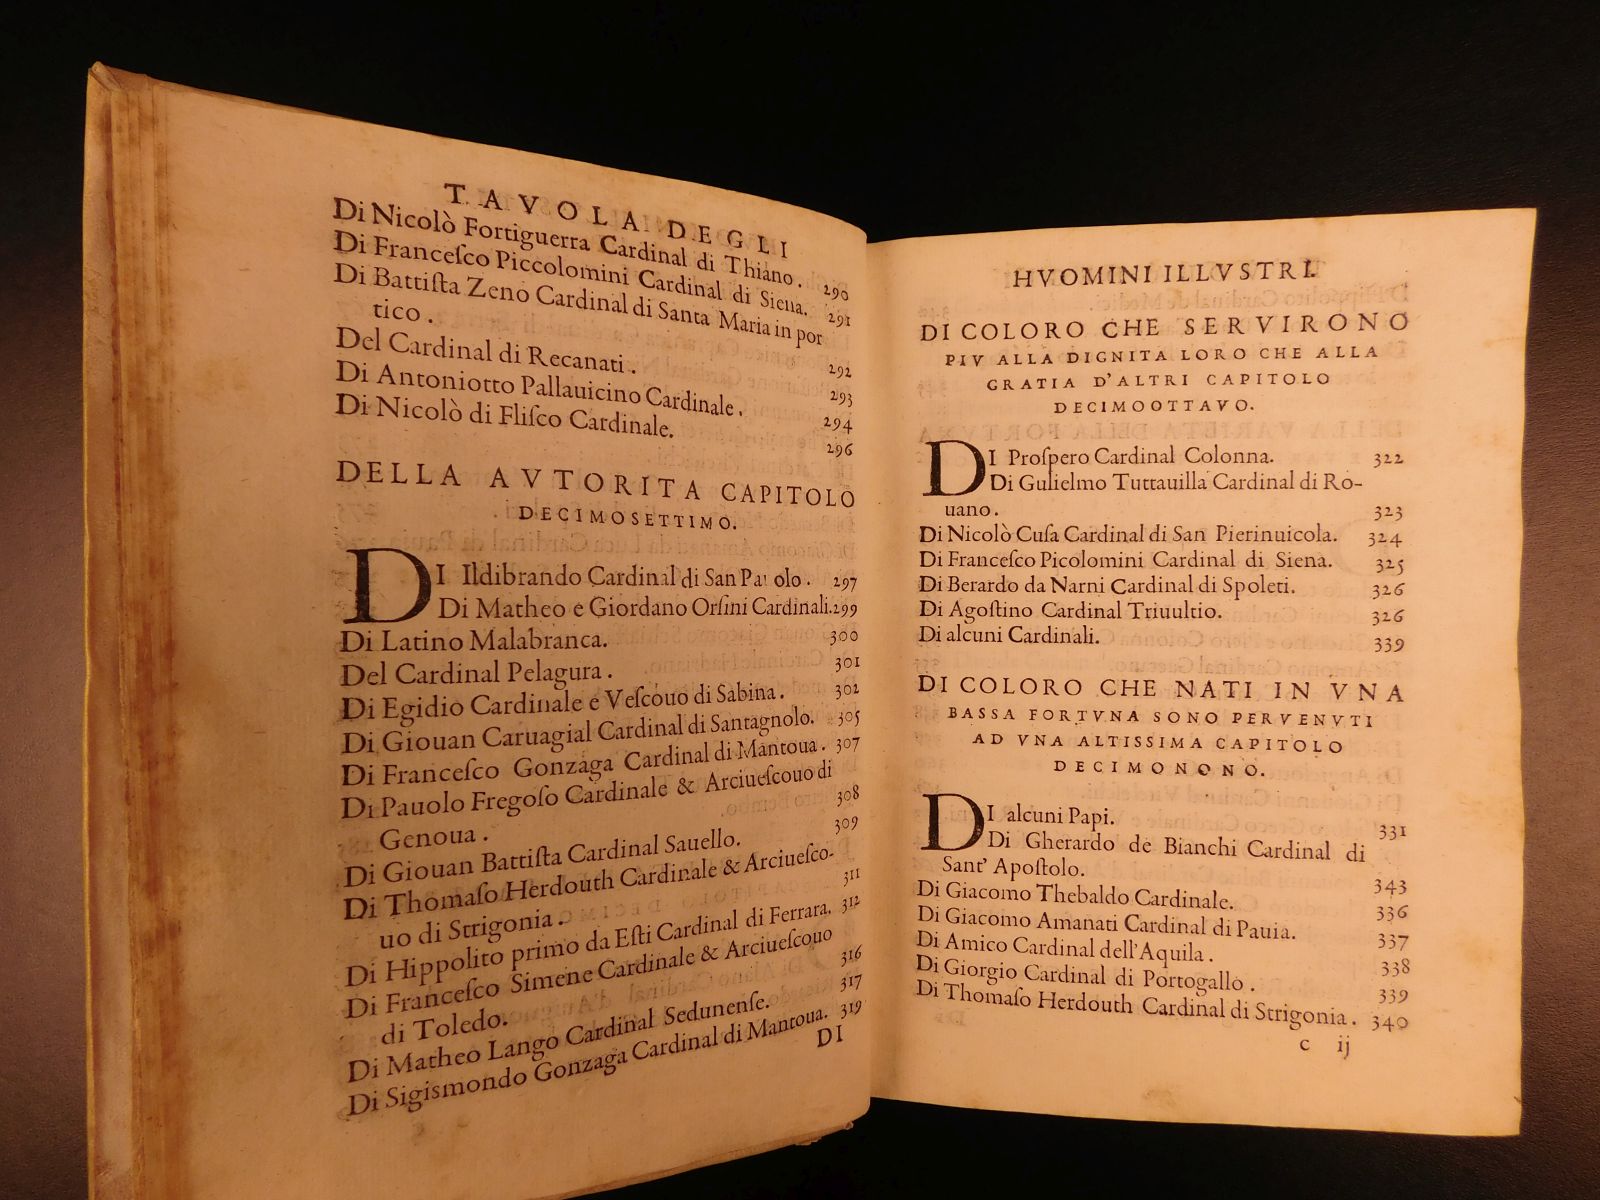 TAVOLA DEGLI
Di Nicolò Fortiguerra Cardinal di Thiano. 290
Di Franceſco Piccolomini Cardinal di Siena. 291
Di Battiſta Zeno Cardinal di Santa Maria in por
tico. 292
Del Cardinal di Recanati. 293
Di Antoniotto Pallauicino Cardinale. 294
Di Nicolò di Fliſco Cardinale. 296
DELLA AVTORITA CAPITOLO
DECIMOSETTIMO.
DI Ildibrando Cardinal di San Pauolo. 297
Di Matheo e Giordano Orſini Cardinali. 299
Di Latino Malabranca. 300
Del Cardinal Pelagura. 301
Di Egidio Cardinale e Veſcouo di Sabina. 302
Di Giouan Caruagial Cardinal di Santagnolo. 305
Di Franceſco Gonzaga Cardinal di Mantoua. 307
Di Pauolo Fregoſo Cardinale & Arciueſcouo di
Genoua. 308
Di Giouan Battiſta Cardinal Sauello. 309
Di Thomaſo Herdouth Cardinale & Arciueſco-
uo di Strigonia. 311
Di Hippolito primo da Eſti Cardinal di Ferrara. 312
Di Franceſco Simene Cardinale & Arciueſcouo
di Toledo. 316
Di Matheo Lango Cardinal Sedunenſe. 317
Di Sigismondo Gonzaga Cardinal di Mantoua. 319
DI
HVOMINI ILLVSTRI.
DI COLORO CHE SERVIRONO
PIV ALLA DIGNITA LORO CHE ALLA
GRATIA D'ALTRI CAPITOLO
DECIMOOTTAVO.
DI Proſpero Cardinal Colonna. 322
Di Gulielmo Tuttauilla Cardinal di Ro-
uano. 323
Di Nicolò Cuſa Cardinal di San Pierinuicola. 324
Di Franceſco Picolomini Cardinal di Siena. 325
Di Berardo da Narni Cardinal di Spoleti. 326
Di Agoſtino Cardinal Triuultio. 326
Di alcuni Cardinali. 339
DI COLORO CHE NATI IN VNA
BASSA FORTVNA SONO PERVENVTI
AD VNA ALTISSIMA CAPITOLO
DECIMONONO.
DI alcuni Papi. 331
Di Gherardo de Bianchi Cardinal di
Sant' Apoſtolo. 343
Di Giacomo Thebaldo Cardinale. 336
Di Giacomo Amanati Cardinal di Pauia. 337
Di Amico Cardinal dell'Aquila. 338
Di Giorgio Cardinal di Portogallo. 339
Di Thomaſo Herdouth Cardinal di Strigonia. 340
c ij